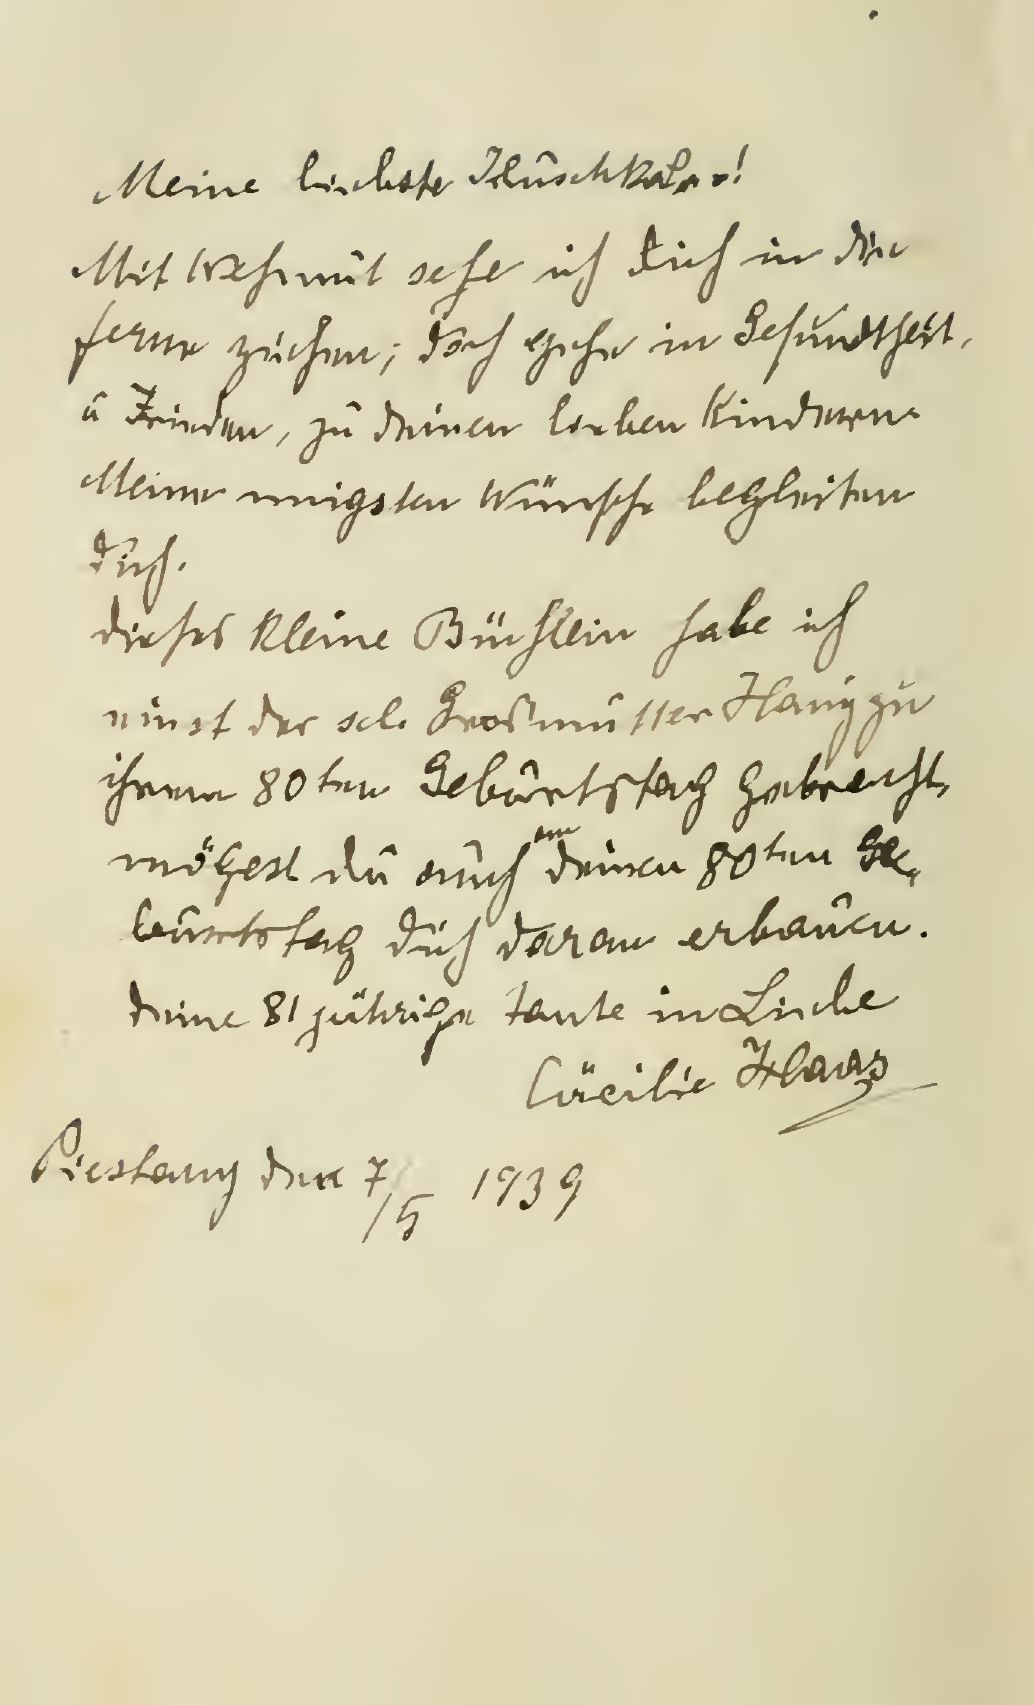 Meine liebste
Mit Wehmut sehe ich dich in die
ferne ziehen; doch gehe in Gesundtheit,
u Frieden, zu deinen lieben Kindern.
Meine innigsten Wünsche begleiten
dich.
dieses kleine Büchlein habe ich
einst der sel. Großmutter Hanig zu
ihrem 80ten Geburtstag gebracht,
mögest du auch am deinen 80ten Ge-
burtstag dich daran erbauen.
deine 81 jährige tante in Liebe
Cäcilie Haas
Piestany den 7/5 1939